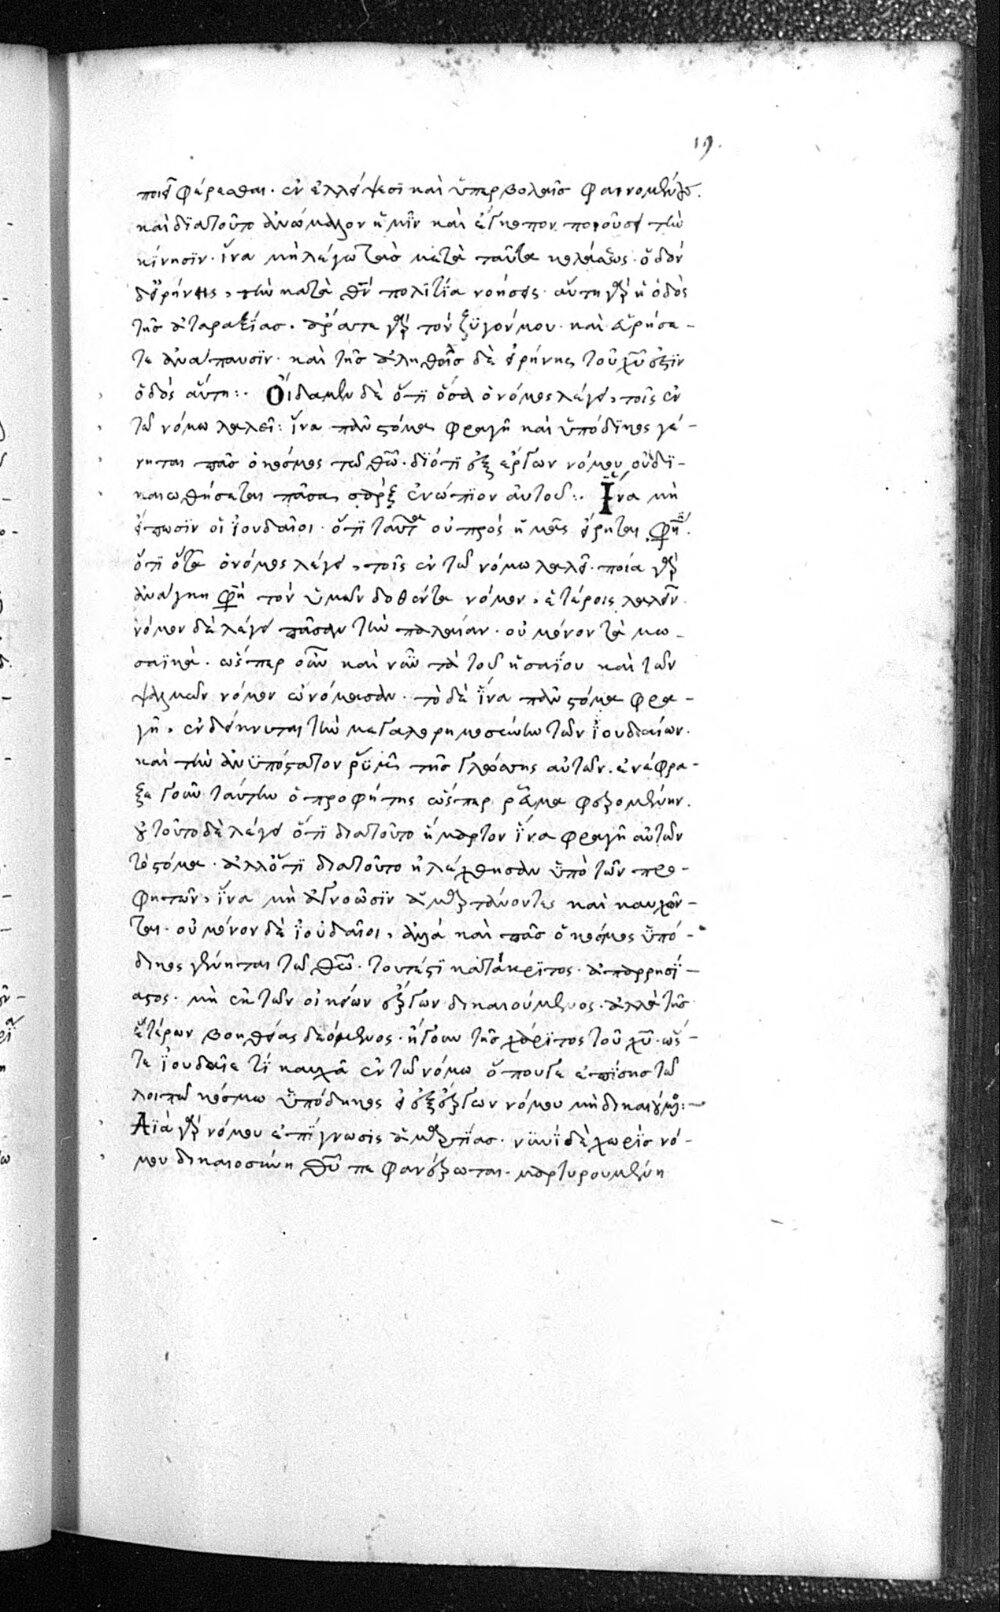 19.
ποιεῖ φέρεσθαι· ἐν ἐλλείψεσι καὶ ὑπερβολαῖς φαινομένου.
καὶ διατοῦτο ἀνώμαλον ἡμῖν καὶ ἔγκοπον ποιοῦσι τὴν
κίνησιν· ἵνα μὴ λέγω τὰς μετὰ ταῦτα κολάσεις· ὁδὸν
δὲ εἰρήνης, τὴν κατὰ θν πολιτεία νοήσεις· αὕτη γὰρ ἡ ὁδὸς
τῆς ἀταραξίας· ἄρατε γὰρ τὸν ζυγόν μου· καὶ εὑρήσε-
τε ἀνάπαυσιν· καὶ τῆς ἀληθοῦς δὲ εἰρήνης τοῦ χυ ἐστὶν
ὁδὸς αὕτη:· Οἴδαμεν δὲ ὅτι ὅσα ὁ νόμος λέγει, τοῖς ἐν
τῶ νόμω λαλεῖ: ἵνα πᾶν στόμα φραγῆ καὶ ὑπόδικος γέ-
νηται πᾶς ὁ κόσμος τῶ θω· διότι ἐξ ἔργων νόμου οὐ δι-
καιωθήσεται πᾶσα σὰρξ ἐνώπιον αὐτοῦ:· Ἵνα μὴ
εἴπωσιν οἱ ἰουδαῖοι· ὅτι ταῦτα οὐ πρὸς ἡμᾶς εἴρηται φησί.
ὅτι ὅσα ὁ νόμος λέγει, τοῖς ἐν τῶ νόμω λαλεῖ· ποία γὰρ
ἀνάγκη φησὶ τὸν ὑμῖν δοθέντα νόμον, ἑτέροις λαλεῖν·
νόμον δὲ λέγει πᾶσαν τὴν παλαιάν· οὐ μόνον τὰ μω-
σαϊκά· ὥσπερ οὖν καὶ νῦν τὰ τοῦ ἡσαΐου καὶ τῶν
ψαλμῶν νόμον ὠνόμασαν· τὸ δὲ ἵνα πᾶν στόμα φρα-
γῆ, ἐνδείκνυται τὴν μεγαλορημοσύνην τῶν ἰουδαίων·
καὶ τὴν ἀνυπόστατον ῥύμην τῆς γλώσσης αὐτῶν· ἐνέφρα-
ξε γοῦν ταύτην ὁ προφήτης ὥσπερ ῥεῦμα φερομένην·
οὐ τοῦτο δὲ λέγει ὅτι διατοῦτο ἥμαρτον ἵνα φραγῆ αὐτῶν
τὸ στόμα· ἀλλ' ὅτι διατοῦτο ἠλέγχθησαν ὑπὸ τῶν προ-
φητῶν, ἵνα μὴ ἀγνοῶσιν ἁμαρτάνοντες καὶ καυχῶν-
ται· οὐ μόνον δὲ ἰουδαῖοι, ἀλλὰ καὶ πᾶς ὁ κόσμος ὑπό-
δικος γένηται τῶ θω· τουτέστι κατάκριτος· ἀπαρρησί-
αστος· μὴ ἐκ τῶν οἰκείων ἔργων δικαιούμενος· ἀλλὰ τῆς
ἑτέρων βοηθείας δεόμενος· ἤγουν τῆς χάριτος τοῦ χυ· ὥσ-
τε ἰουδαῖε τί καυχᾶ ἐν τῶ νόμω ὅπουγε ἐπίσης τῶ
λοιπῶ κόσμω ὑπόδικος εἶ ἐξ ἔργων νόμου μὴ δικαιούμενος:
Διὰ γὰρ νόμου ἐπίγνωσις ἁμαρτίας· νυνὶ δὲ χωρὶς νό-
μου δικαιοσύνη θυ πεφανέρωται· μαρτυρουμένη